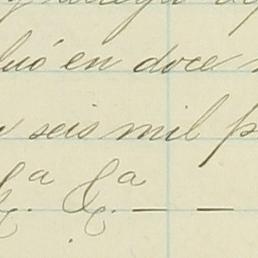 luó en doce
seis mil p
&ª. &ª. — —